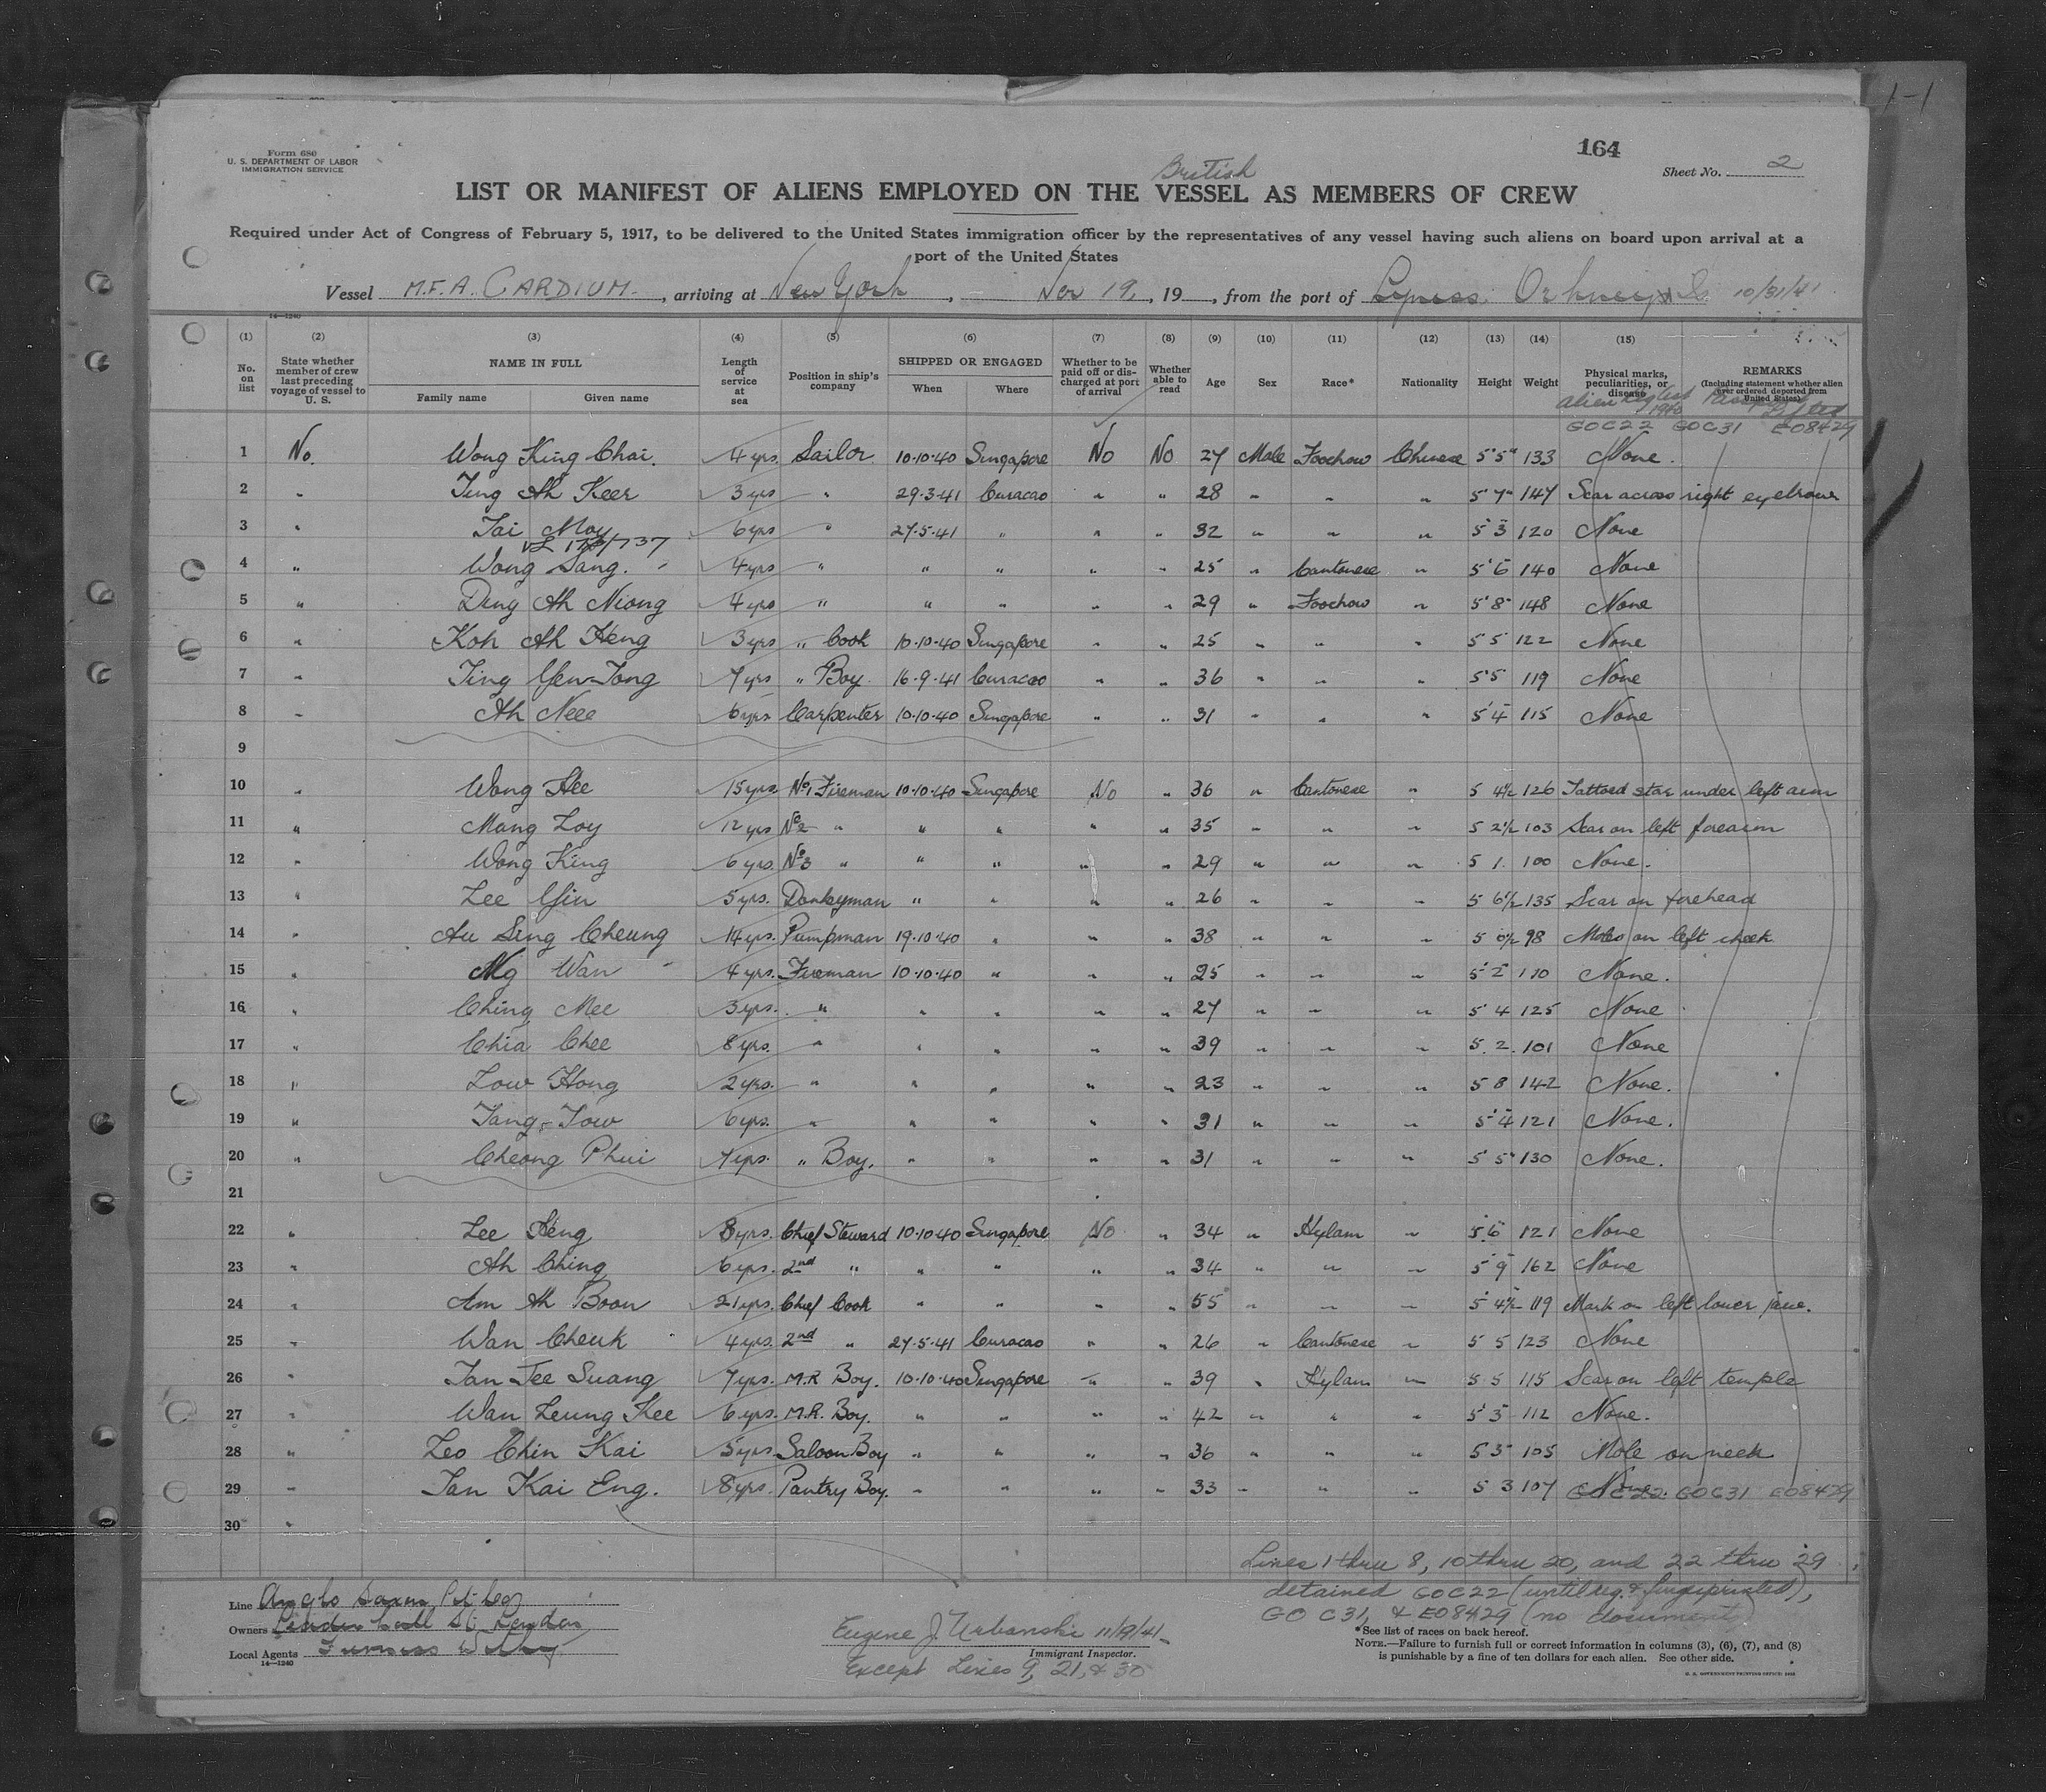 1-1
164
Form 680
U. S. DEPARTMENT OF LABOR
IMMIGRATION SERVICE
Sheet No. 2
British
LIST OR MANIFEST OF ALIENS EMPLOYED ON THE VESSEL AS MEMBERS OF CREW
Required under Act of Congress of February 5, 1917, to be delivered to the United States immigration officer by the representatives of any vessel having such aliens on board upon arrival at a
port of the United States
Vessel M.F.A. CARDIUM, arriving at New York, Nov 19, 19, from the port of Lyness Orkney Is 10/31/41
14-1240
(1) (2) (3) (4) (5) (6) (7) (8) (9) (10) (11) (12) (13) (14) (15)
No. on list State whether member of crew last preceding voyage of vessel to U. S. NAME IN FULL Family name Given name Length of service at sea Position in ship's company SHIPPED OR ENGAGED When Where Whether to be paid off or discharged at port of arrival Whether able to read Age Sex Race* Nationality Height Weight Physical marks, peculiarities, or disease REMARKS (Including statement whether alien ever ordered deported from United States)
GOC22 GOC31 EO8429
1 No. Wong King Chai. 4 yrs. Sailor 10.10.40 Singapore No No 27 Male Foochow Chinese 5'5" 133 None.
2 " Ting Ah Keer 3 yrs " 29.3.41 Curacao " " 28 " " " 5'7" 147 Scar across right eyebrow
3 " Tai Moy 6 yrs " 27.5.41 " " " 32 " " " 5'3 120 None
4 " Wong Sang. 4 yrs " " " " " 25 " Cantonese " 5'6 140 None
5 " Ding Ah Niong 4 yrs " " " " " 29 " Foochow " 5'8" 148 None
6 " Koh Ah Heng 3 yrs " Cook 10.10.40 Singapore " " 25 " " " 5 5 122 None
7 " Ting Yew Tong 7 yrs " Boy. 16.9.41 Curacao " " 36 " " " 5'5 119 None
8 " Ah Nee 6 yrs Carpenter 10.10.40 Singapore " " 31 " " " 5'4 115 None
9
10 " Wong Hee 15 yrs. No1 Fireman 10.10.40 Singapore No " 36 " Cantonese " 5 4½ 126 Tattood star under left arm
11 " Mang Loy 12 yrs No2 " " " " " 35 " " " 5 2½ 103 Scar on left forearm
12 " Wong King 6 yrs. No3 " " " " " 29 " " " 5 1. 100 None.
13 " Lee Yin 5 yrs. Donkeyman " " " " 26 " " " 5 6½ 135 Scar on forehead
14 " Au Sing Cheung 14 yrs. Pumpman 19.10.40 " " " 38 " " " 5 0½ 98 Moles on left cheek
15 " Ng Wan 4 yrs. Fireman 10.10.40 " " " 25 " " " 5'2 110 None.
16 " Ching Mee 3 yrs. " " " " " 27 " " " 5 4 125 None
17 " Chia Chee 8 yrs. " " " " " 39 " " " 5. 2. 101 None
18 " Low Hong 2 yrs. " " " " " 23 " " " 5 8 142 None.
19 " Tang Tow 6 yrs. " " " " " 31 " " " 5'4 121 None.
20 " Cheong Phui 7 yrs. " Boy. " " " " 31 " " " 5 5" 130 None.
21
22 " Lee Heng 8 yrs. Chief Steward 10.10.40 Singapore No " 34 " Hylam " 5.6 121 None
23 " Ah Ching 6 yrs. 2nd " " " " " 34 " " " 5'9 162 None
24 " Am Ah Boon 21 yrs. Chief Cook " " " " 55 " " " 5'4½ 119 Mark on left lower jaw.
25 " Wan Cheuk 4 yrs. 2nd " 27.5.41 Curacao " " 26 " Cantonese " 5 5 123 None
26 " Tan Jee Suang 7 yrs. M.R Boy. 10.10.40 Singapore " " 39 " Hylam " 5.5 115 Scar on left temple
27 " Wan Leung Kee 6 yrs. M.R. Boy. " " " " 42 " " " 5'3 112 None.
28 " Leo Chin Kai 5 yrs Saloon Boy " " " " 36 " " " 5 3 105 Mole on neck
29 " Tan Kai Eng. 8 yrs. Pantry Boy. " " " " 33 " " " 5 3 107 None. GOC22 GOC31 EO8429
30 "
Lines 1 thru 8, 10 thru 20, and 22 thru 29
detained GOC22 (until reg. & fingerprinted),
GO C31, & EO8429 (no document)
Line Anglo Saxon Pet Co
Owners St London
Local Agents Furness Withy
14-1240
Eugene J. Urbanski 11/19/41
Immigrant Inspector.
Except Lines 9, 21, & 30
*See list of races on back hereof.
NOTE.—Failure to furnish full or correct information in columns (3), (6), (7), and (8)
is punishable by a fine of ten dollars for each alien. See other side.